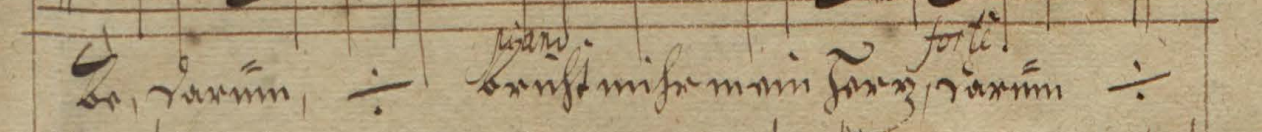 piano. forte.
be, darum, ÷ bricht mihr mein Hertz, darum ÷